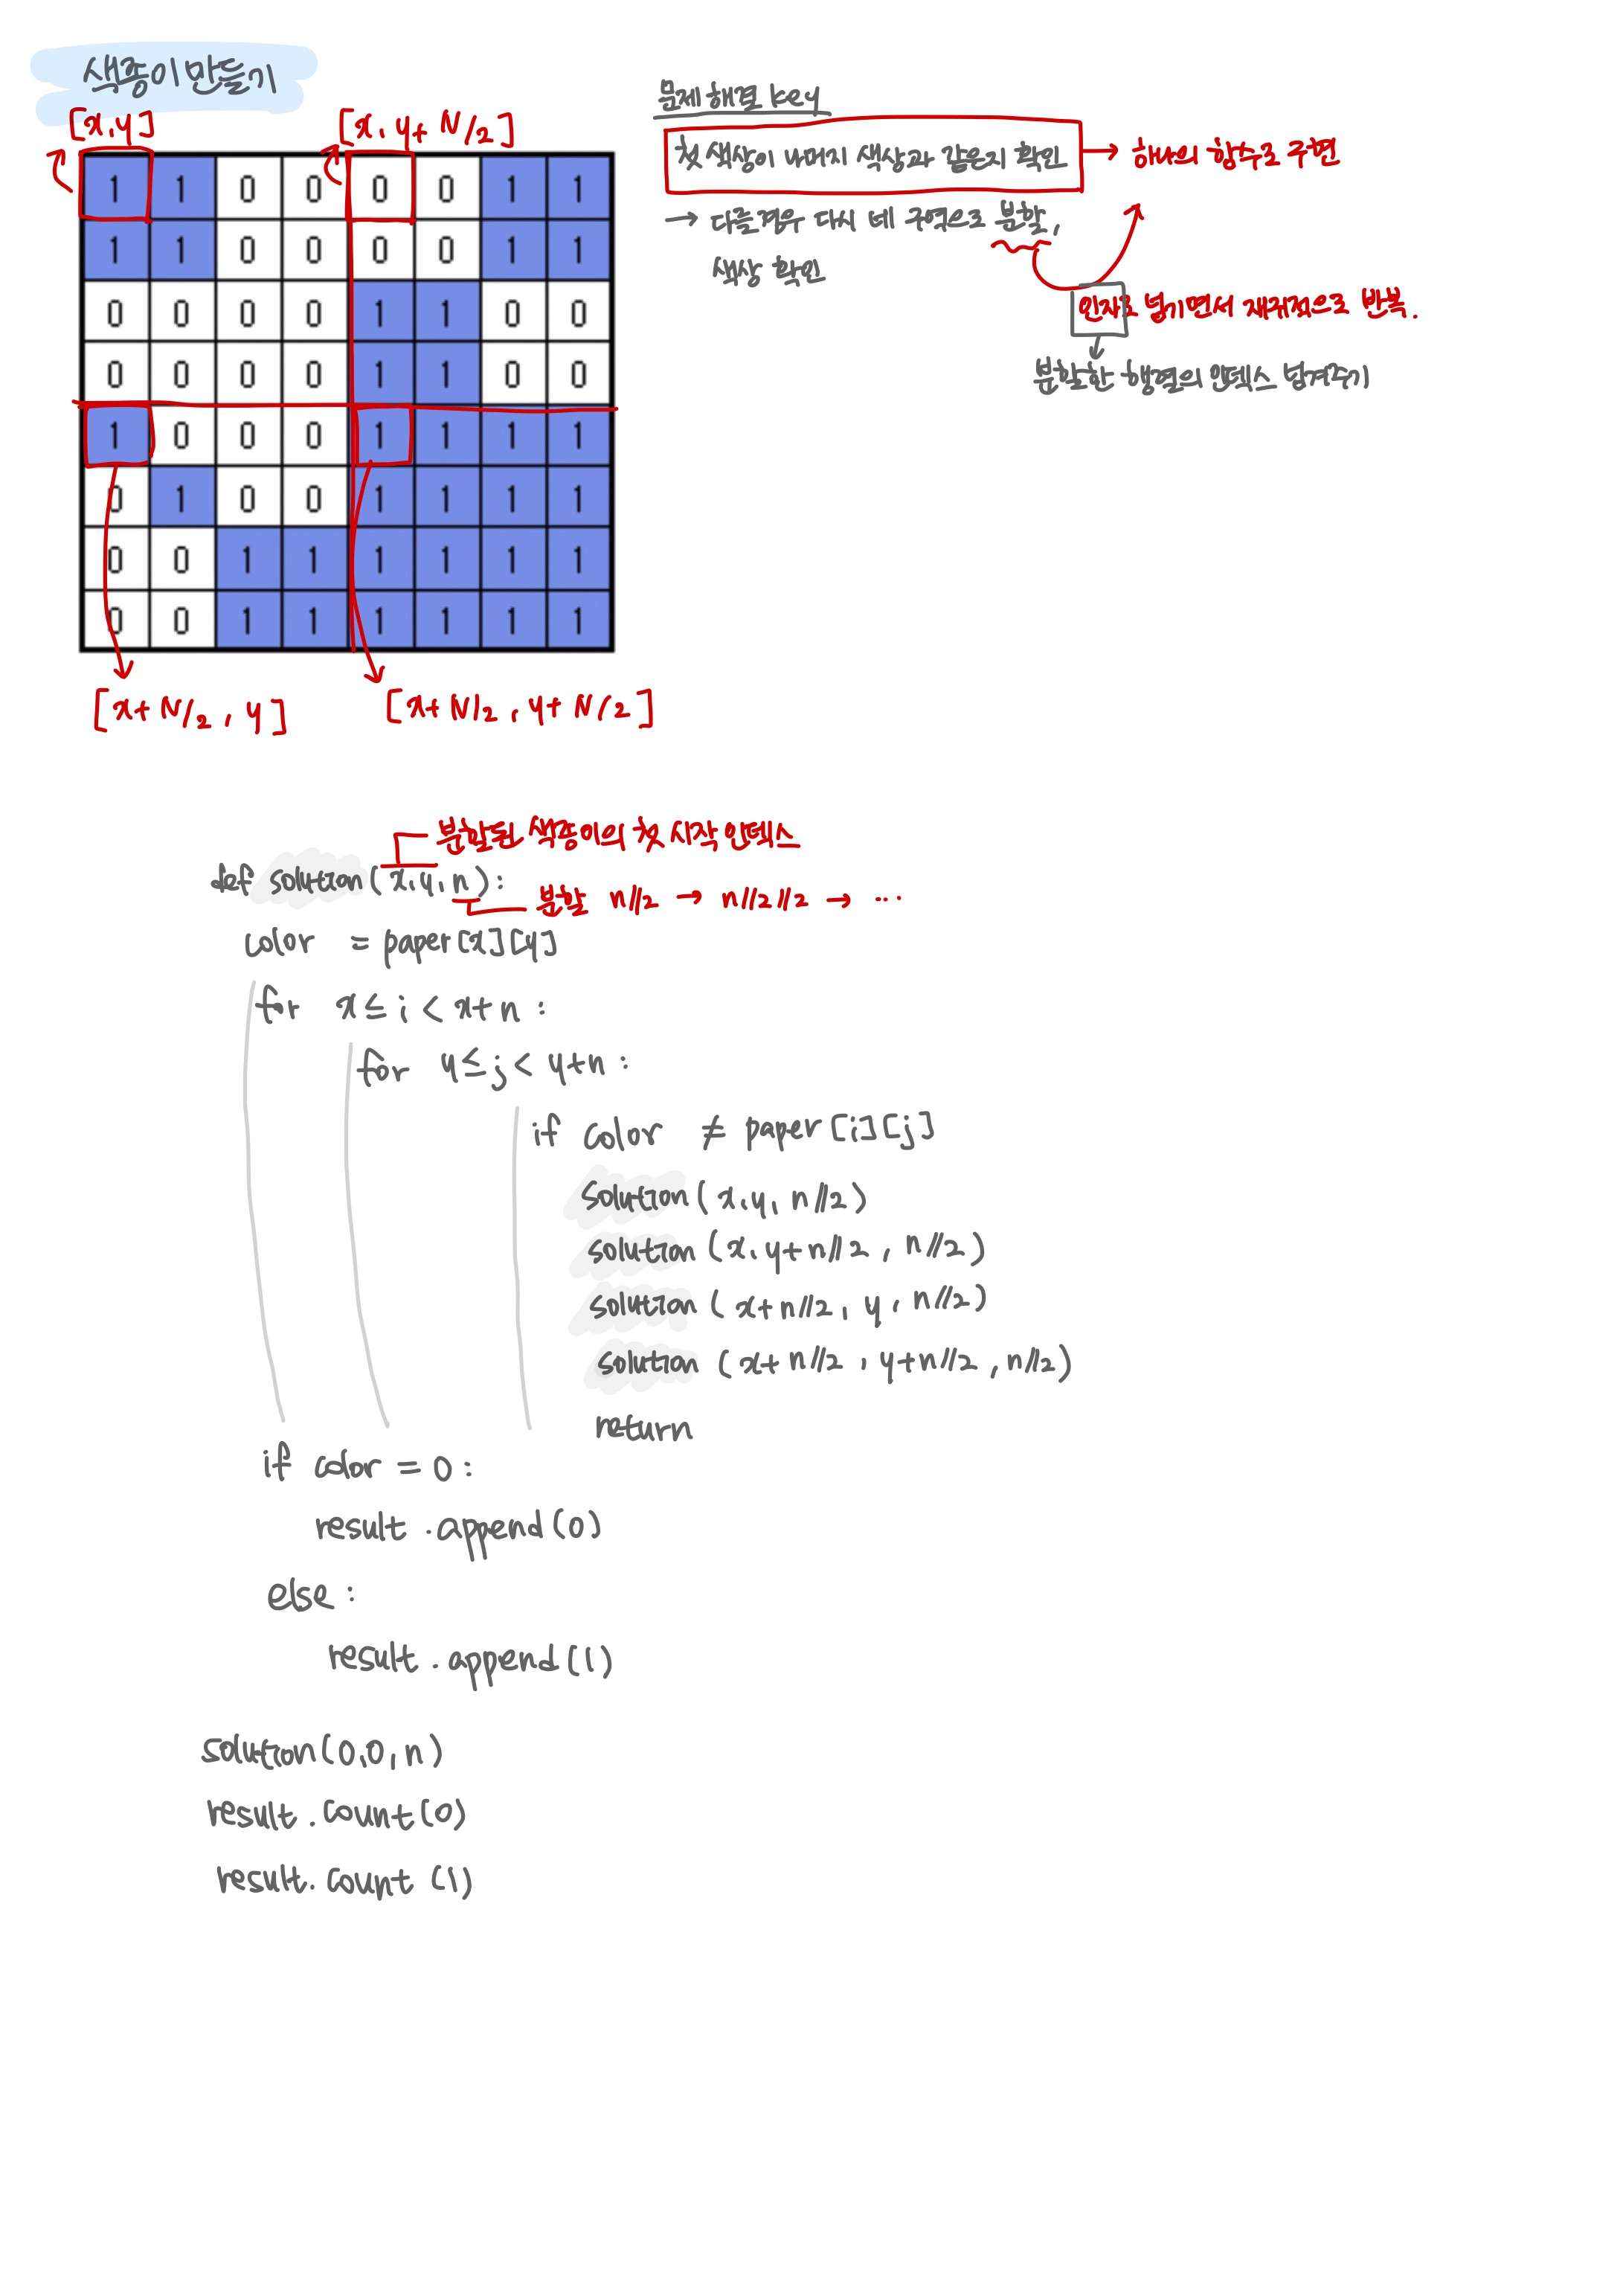 색종이 만들기
[x,y]
[x, y+ N/2]
1 1 0 0 0 0 1 1
1 1 0 0 0 0 1 1
0 0 0 0 1 1 0 0
0 0 0 0 1 1 0 0
1 0 0 0 1 1 1 1
0 1 0 0 1 1 1 1
0 0 1 1 1 1 1 1
0 0 1 1 1 1 1 1
[x+ N/2, y]
[x+ N/2, y+ N/2]
문제 해결 key
첫 색상이 나머지 색상과 같은지 확인 → 하나의 함수로 구현
→ 다를경우 다시 네 구역으로 분할,
색상 확인
인자로 넘기면서 재귀적으로 반복.
분할한 행열의 인덱스 넘겨주기
분할된 색종이의 첫 시작 인덱스
def solution(x,y,n):
분할 n//2 → n//2//2 → ...
color = paper[x][y]
for x≤ i < x+ n :
for y≤ j < y+n :
if color ≠ paper[i][j]
solution( x,y, n//2)
solution (x, y+n//2, n//2)
solution ( x+n//2, y, n//2)
solution (x+ n//2, y+n//2, n//2)
return
if color = 0 :
result .append(0)
else :
result . append(1)
solution(0,0,n)
result. count(0)
result. count (1)